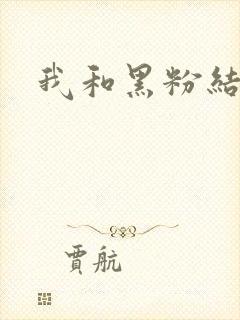 我和黑粉結
賈航